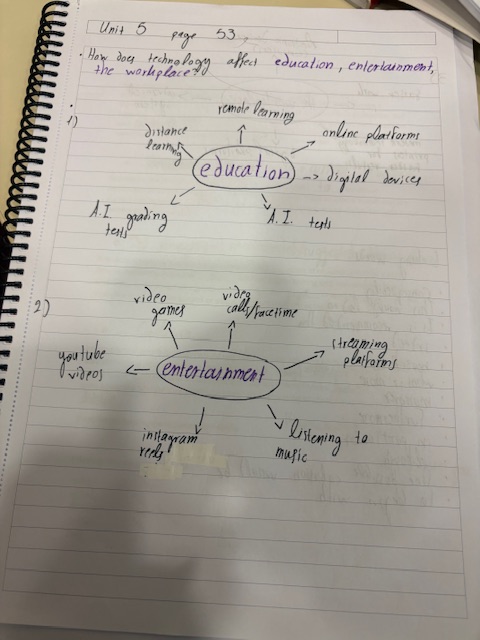 Unit 5 page 53
· How does technology affect education, entertainment,
the workplace?
1)
remote learning
distance
learning
online platforms
education
-> digital devices
A.I. grading
tests
A.I. tests
2)
video
games
video
calls/facetime
streaming
platforms
youtube
videos
entertainment
instagram
reels
listening to
music